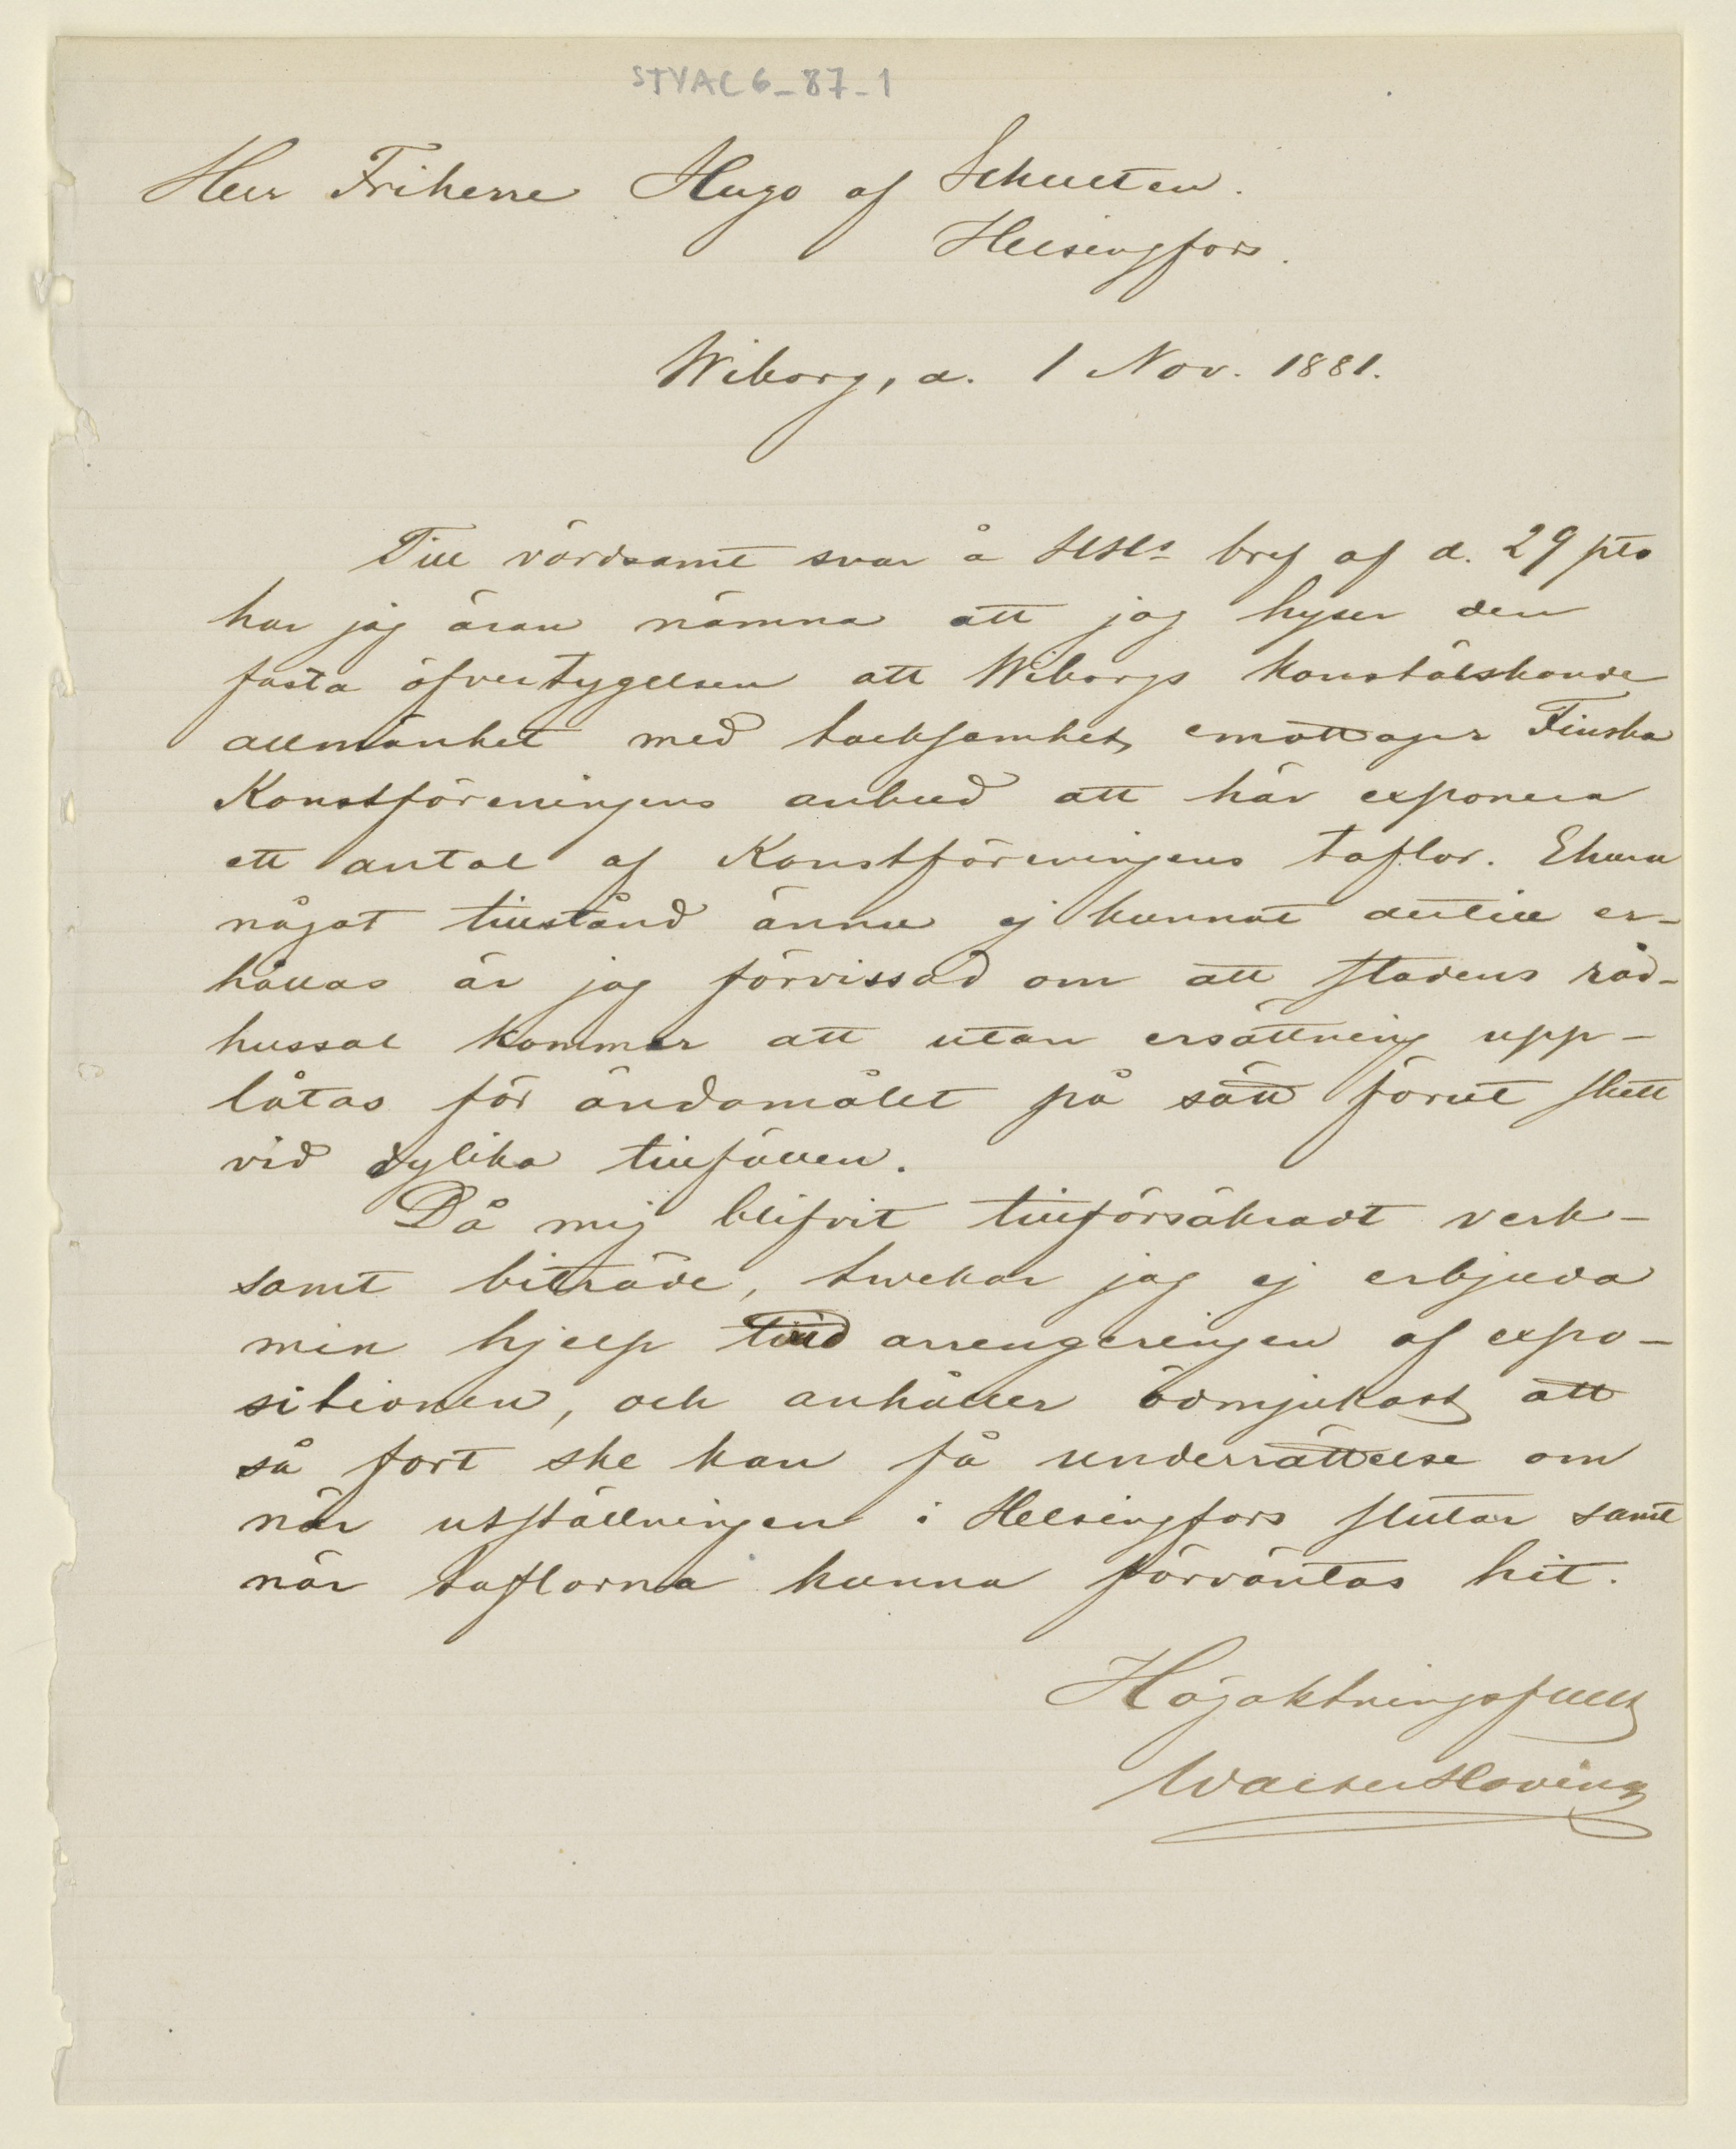 STYAC6_87_1
Herr Friherre Hugo af Schultén.
Helsingfors.
Wiborg, d. 1 Nov. 1881.
Till vördsamt svar å HHrs bref af d. 29 pto
har jag äran nämna att jag hyser den
fasta öfvertygelsen att Wiborgs konstälskande
allmänhet med tacksamhet emottager Finska
Konstföreningens anbud att här exponera
ett antal af Konstföreningens taflor. Ehuru
något tillstånd ännu ej kunnat dertill er-
hållas är jag förvissad om att stadens råd-
hussal kommer att utan ersättning upp-
låtas för ändamålet på sätt förut skett
vid dylika tillfällen.
Då mig blifvit tillförsäkradt verk-
samt biträde, twekar jag ej erbjuda
min hjelp vid arrengeringen af expo-
sitionen, och anhåller ödmjukast att
så fort ske kan få underrättelse om
när utställningen i Helsingfors slutar samt
när taflorna kunna förväntas hit.
Högaktningsfullt
Walter Hoving